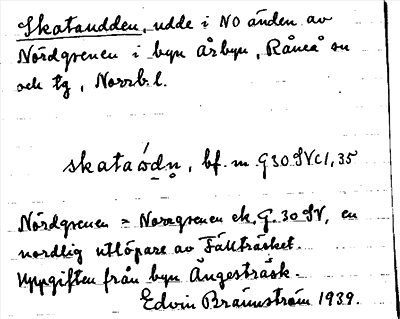 Skataudden, udde i NO änden av
Nördgrenen i byn Årbyn, Råneå sn
och tg, Norrb. l.
skataódn, bf. m. G30SVc1,35
Nördgrenen = Norrgrenen ek. G. 30 SV, en
nordlig utlöpare av Fällträsket.
Uppgiften från byn Ängesträsk.
Edvin Brännström 1939.